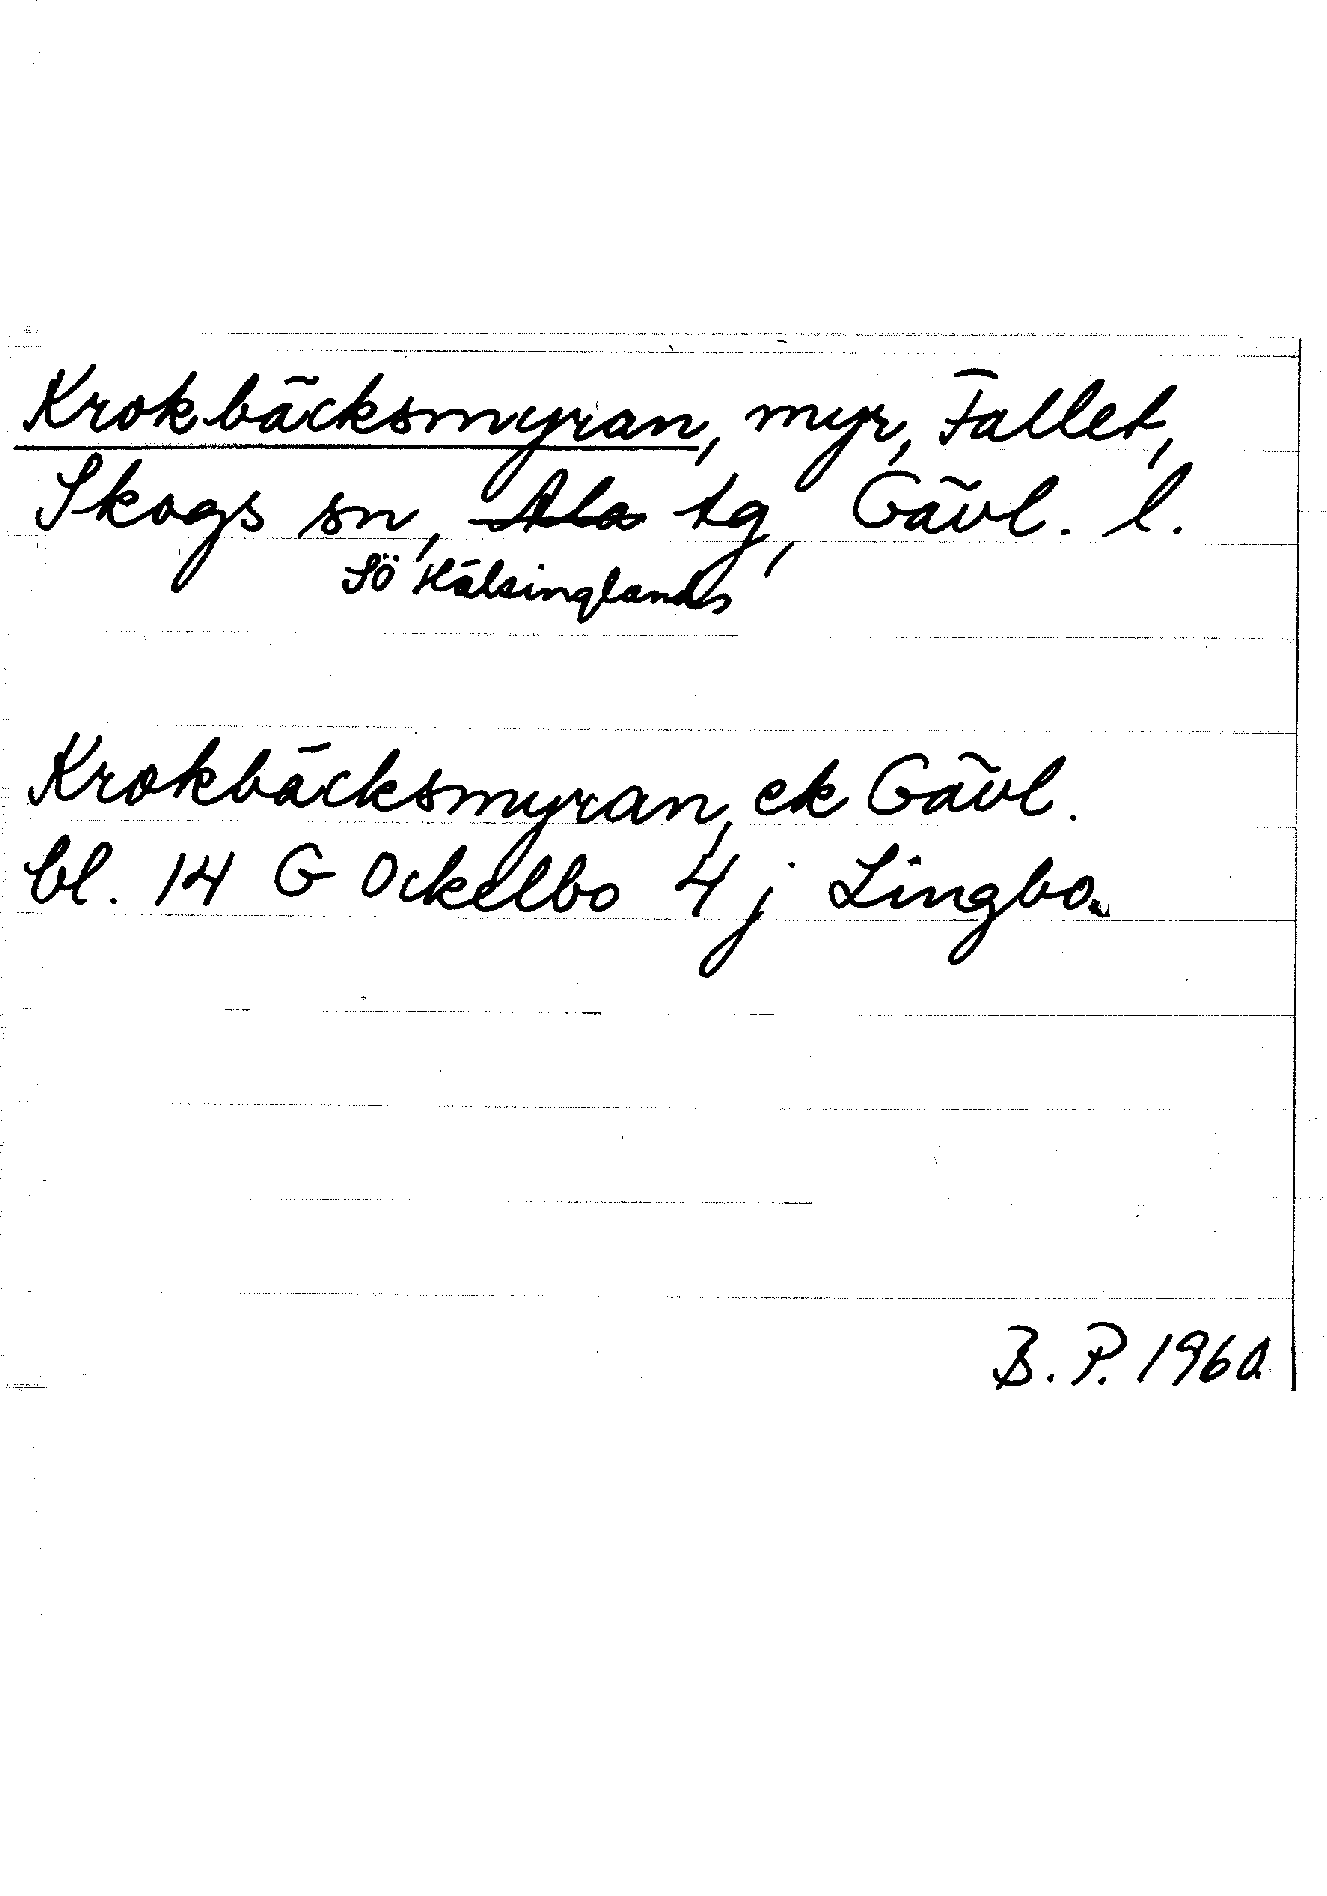 Krokbäcksmyran, myr, Fallet,
Skogs sn, Ala tg, Gävl. l.
Sö Hälsinglands
Krokbäcksmyran, ek Gävl.
bl. 14 G Ockelbo 4 j Lingbo.
B. P. 1960